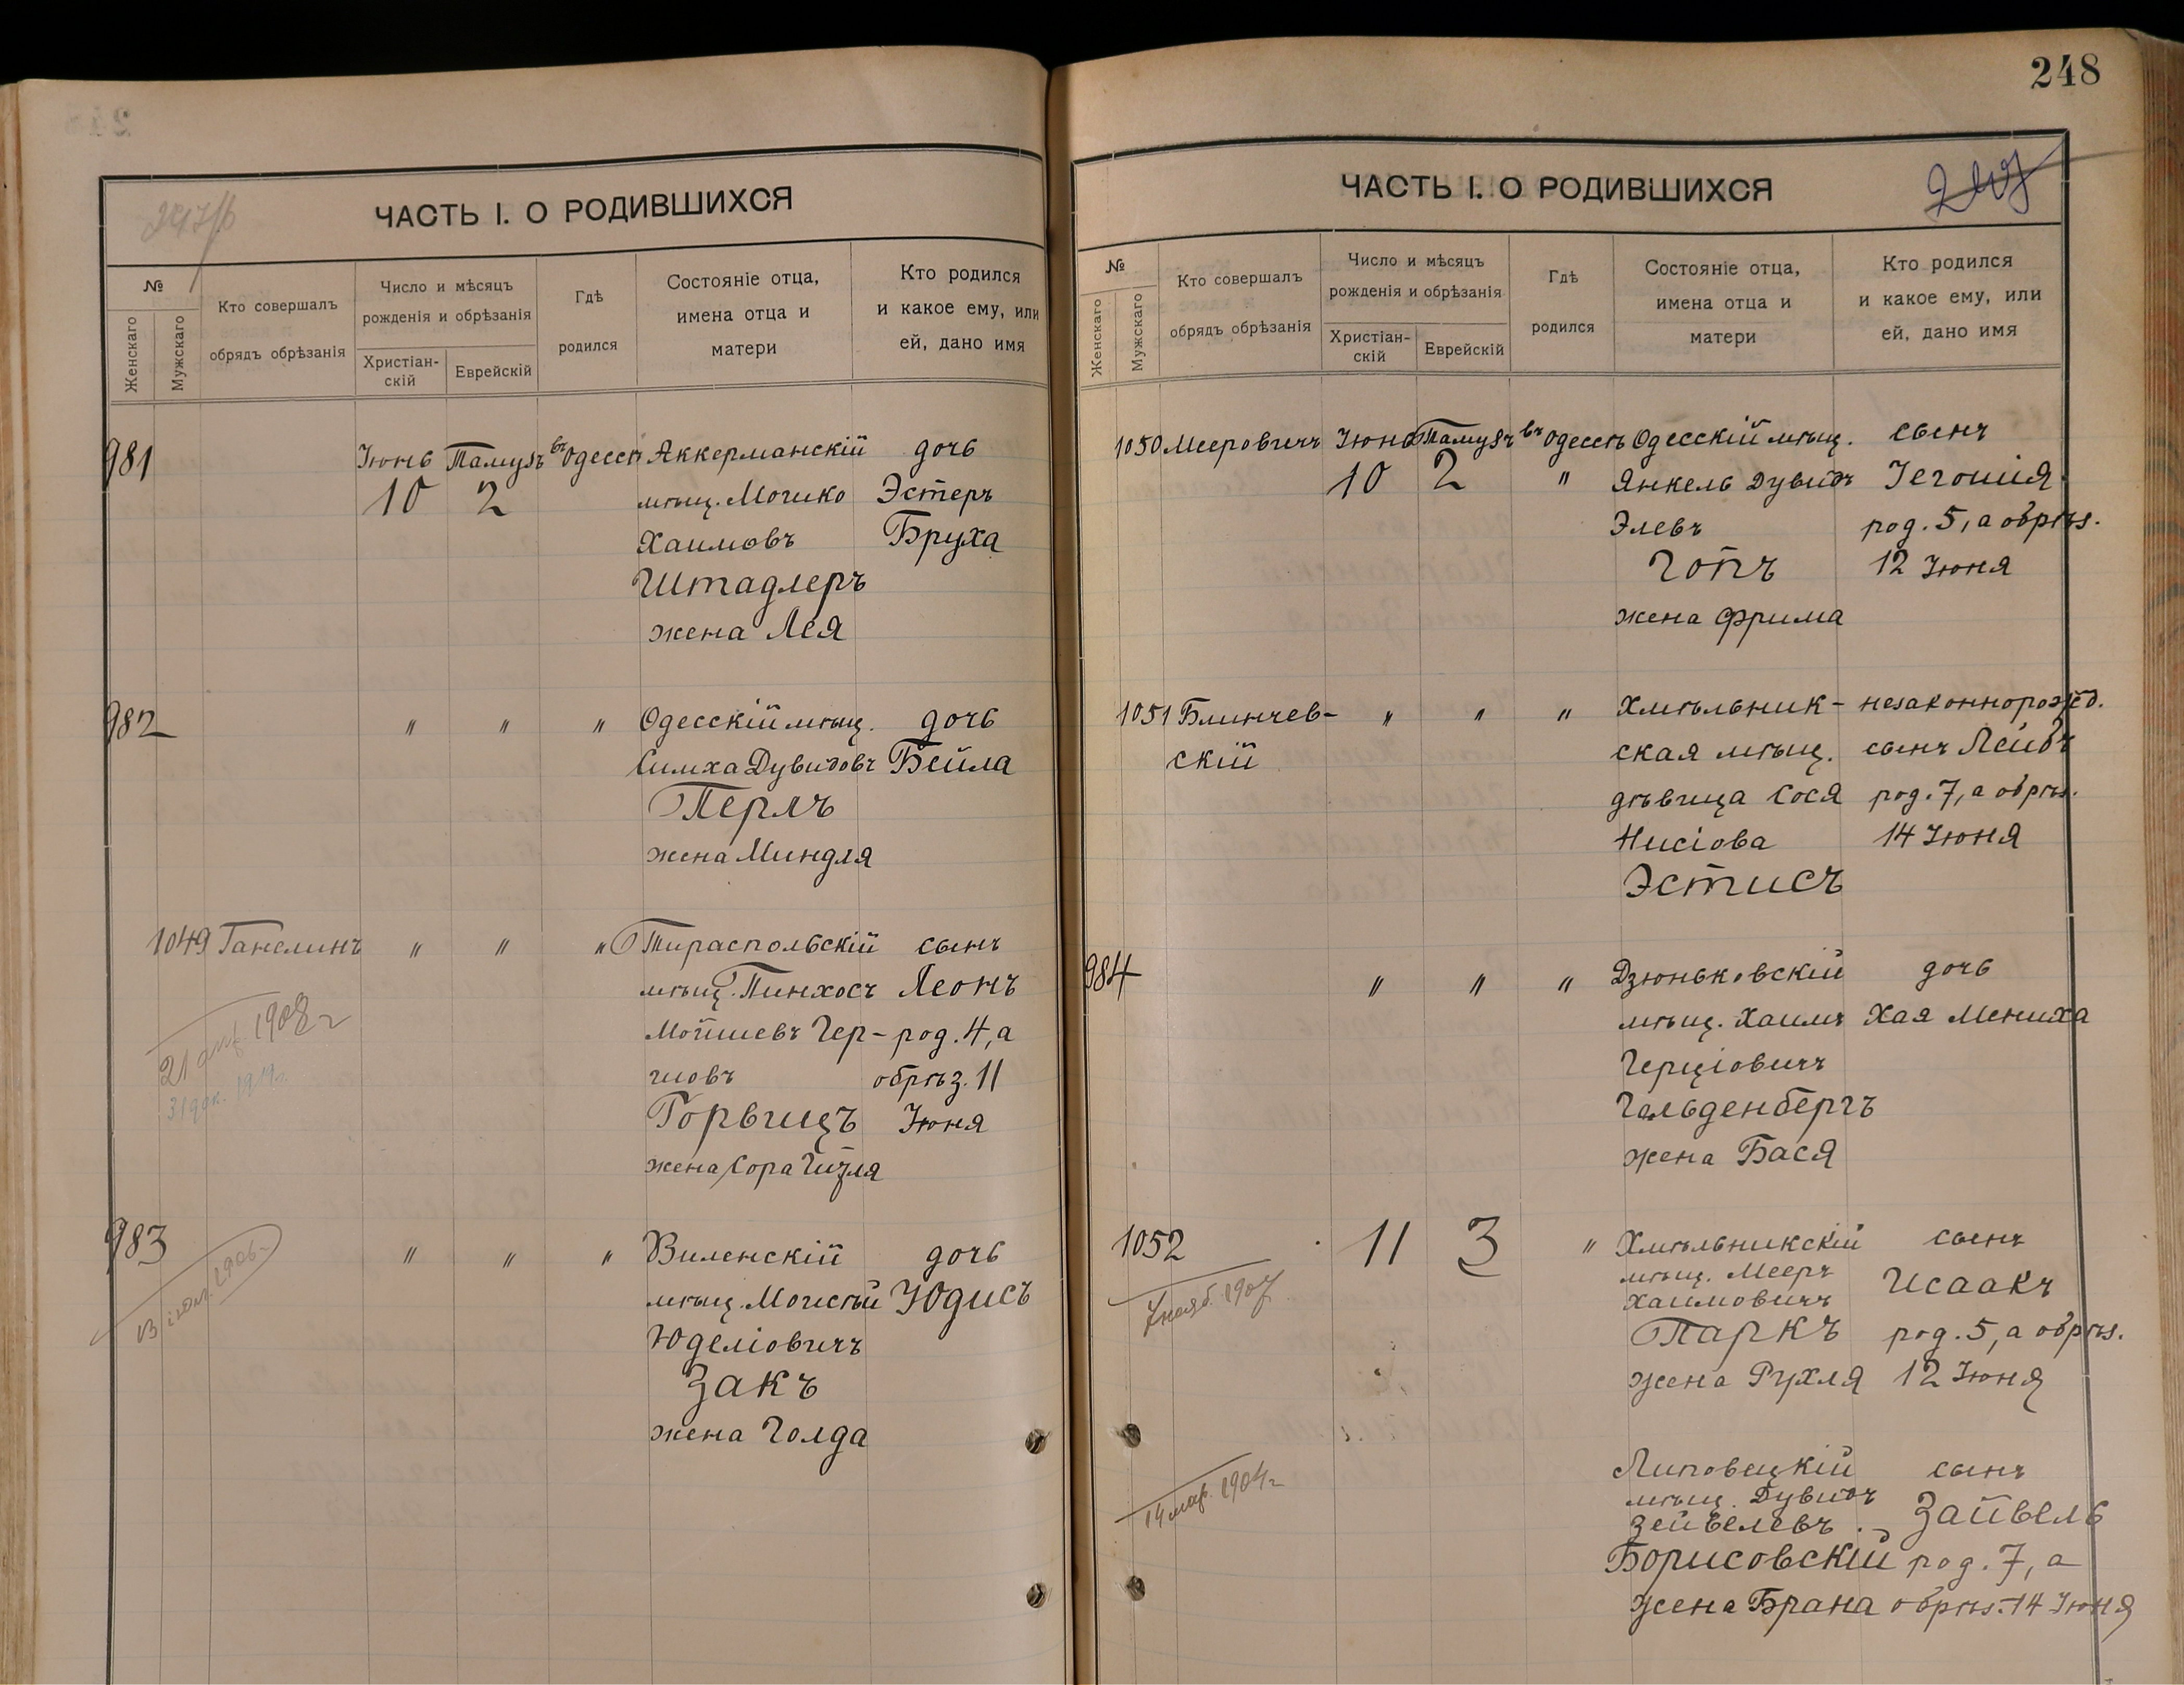 248
ЧАСТЬ I. О РОДИВШИХСЯ
№
Женскаго
Мужскаго
Кто совершалъ
обрядъ обрѣзанія
Число и мѣсяцъ
рожденія и обрѣзанія
Христіан-
скій
Еврейскій
Гдѣ
родился
Состояніе отца,
имена отца и
матери
Кто родился
и какое ему, или
ей, дано имя
981 Іюнь Тамузъ въ Одессѣ Аккерманскій дочь
10 2 мѣщ. Мошко Эстеръ
Хаимовъ Бруха
Штадлеръ
жена Лея
982 " " " Одесскій мѣщ. дочь
Симха Дувидовъ Бейла
Перлъ
жена Миндля
1049 Ганелинъ " " " Тираспольскій сынъ
мѣщ. Пинхосъ Леонъ
Мойшевъ Гер- род. 4, а
шовъ обрѣз. 11
Горвицъ Іюня
жена Сора Гизля
1908 г
983 " " " Виленскій дочь
мѣщ. Мошсѣй Юдисъ
Юделіовичъ
Закъ
жена Голда
ЧАСТЬ I. О РОДИВШИХСЯ
№
Женскаго
Мужскаго
Кто совершалъ
обрядъ обрѣзанія
Число и мѣсяцъ
рожденія и обрѣзанія
Христіан-
скій
Еврейскій
Гдѣ
родился
Состояніе отца,
имена отца и
матери
Кто родился
и какое ему, или
ей, дано имя
1050 Мееровичъ Іюнь Тамузъ въ Одессѣ Одесскій мѣщ. сынъ
10 2 " Янкель Дувидъ Іегошія
Элевъ род. 5, а обрѣз.
Гопъ 12 Іюня
жена Фрима
1051 Блинчев- " " " Хмѣльник- незаконнорожд.
скій ская мѣщ. сынъ Лейбъ
дѣвица Сося род. 7, а обрѣз.
Нисіова 14 Іюня
Эстисъ
984 " " " Дзюньковскій дочь
мѣщ. Хаимъ Хая Мениха
Герціовичъ
Гальденбергъ
жена Бася
1052 11 3 " Хмѣльникскій сынъ
мѣщ. Мееръ Исаакъ
Хаимовичъ
Паркъ род. 5, а обрѣз.
жена Рухля 12 Іюня
7 нояб. 1907
Липовецкій сынъ
мѣщ. Дувидъ Зайвель
Зейвелевъ
Борисовскій род. 7, а
жена Брана обрѣз. 14 Іюня
14 мар. 1904 г